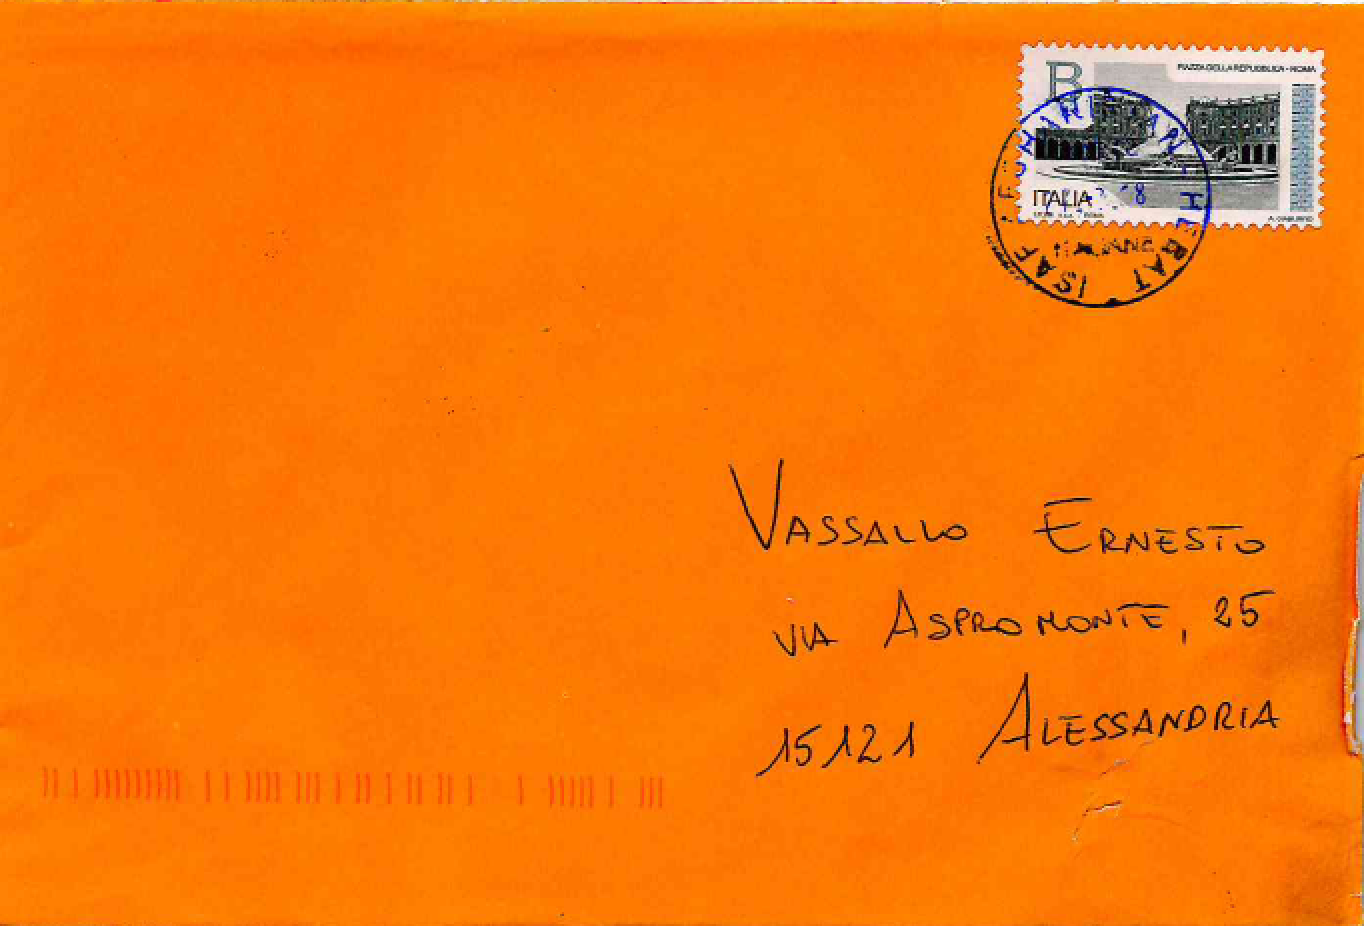 B
PIAZZA DELLA REPUBBLICA - ROMA
ITALIA
HERAT · ISAF
VASSALLO ERNESTO
VIA ASPROMONTE, 25
15121 ALESSANDRIA